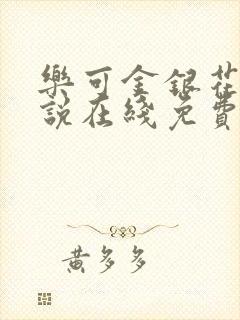 樂可金銀花
說在綫免費
黃多多